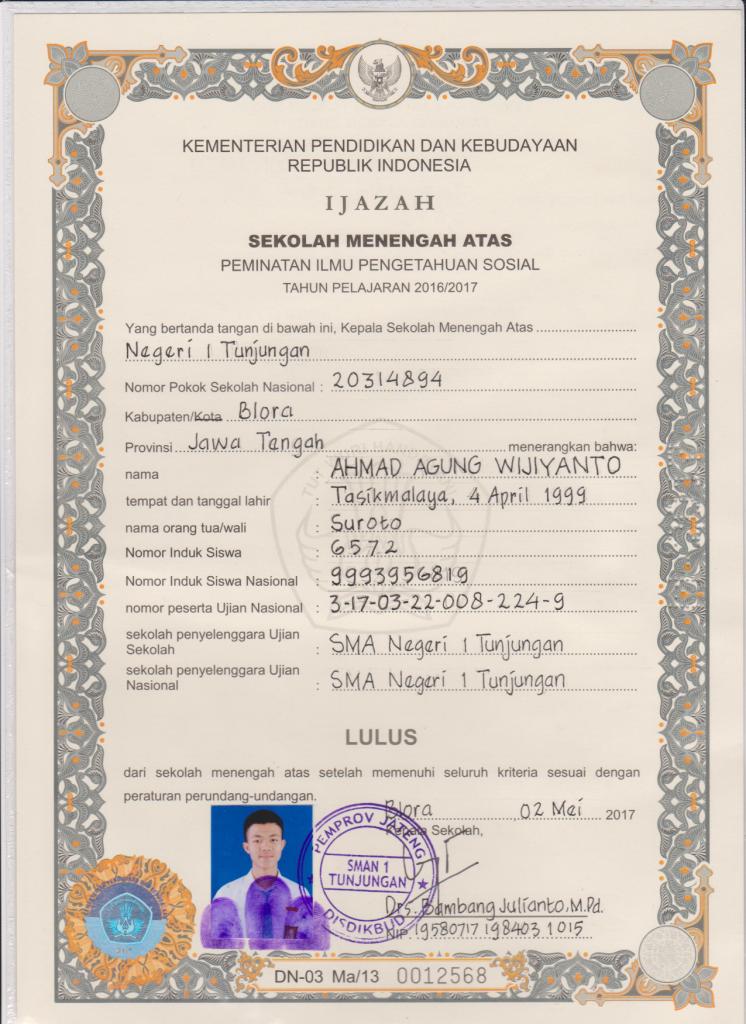 KEMENTERIAN PENDIDIKAN DAN KEBUDAYAAN
REPUBLIK INDONESIA
IJAZAH
SEKOLAH MENENGAH ATAS
PEMINATAN ILMU PENGETAHUAN SOSIAL
TAHUN PELAJARAN 2016/2017
Yang bertanda tangan di bawah ini, Kepala Sekolah Menengah Atas
Negeri 1 Tunjungan
Nomor Pokok Sekolah Nasional : 20314894
Kabupaten/Kota Blora
Provinsi Jawa Tengah menerangkan bahwa:
nama : AHMAD AGUNG WIJIYANTO
tempat dan tanggal lahir : Tasikmalaya, 4 April 1999
nama orang tua/wali : Suroto
Nomor Induk Siswa : 6572
Nomor Induk Siswa Nasional : 9993956819
nomor peserta Ujian Nasional : 3-17-03-22-008-224-9
sekolah penyelenggara Ujian
Sekolah : SMA Negeri 1 Tunjungan
sekolah penyelenggara Ujian
Nasional : SMA Negeri 1 Tunjungan
LULUS
dari sekolah menengah atas setelah memenuhi seluruh kriteria sesuai dengan
peraturan perundang-undangan.
Blora, 02 Mei 2017
Kepala Sekolah,
PEMPROV JATENG
SMAN 1
TUNJUNGAN
DISDIKBUD
Drs. Bambang Julianto.M.Pd.
NIP. 19580717 198403 1 015
DN-03 Ma/13 0012568